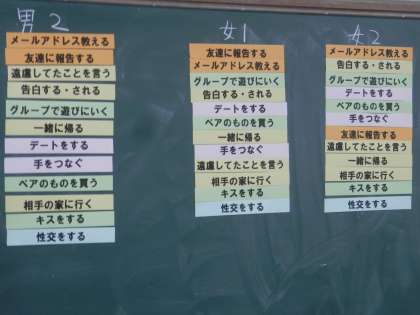 男2
メールアドレス教える
友達に報告する
遠慮してたことを言う
告白する・される
グループで遊びにいく
一緒に帰る
デートをする
手をつなぐ
ペアのものを買う
相手の家に行く
キスをする
性交をする
女1
友達に報告する
メールアドレス教える
グループで遊びにいく
告白する・される
デートをする
ペアのものを買う
一緒に帰る
手をつなぐ
遠慮してたことを言う
相手の家に行く
キスをする
性交をする
女2
メールアドレス教える
告白する・される
グループで遊びにいく
デートをする
ペアのものを買う
手をつなぐ
友達に報告する
遠慮してたことを言う
一緒に帰る
相手の家に行く
キスをする
性交をする